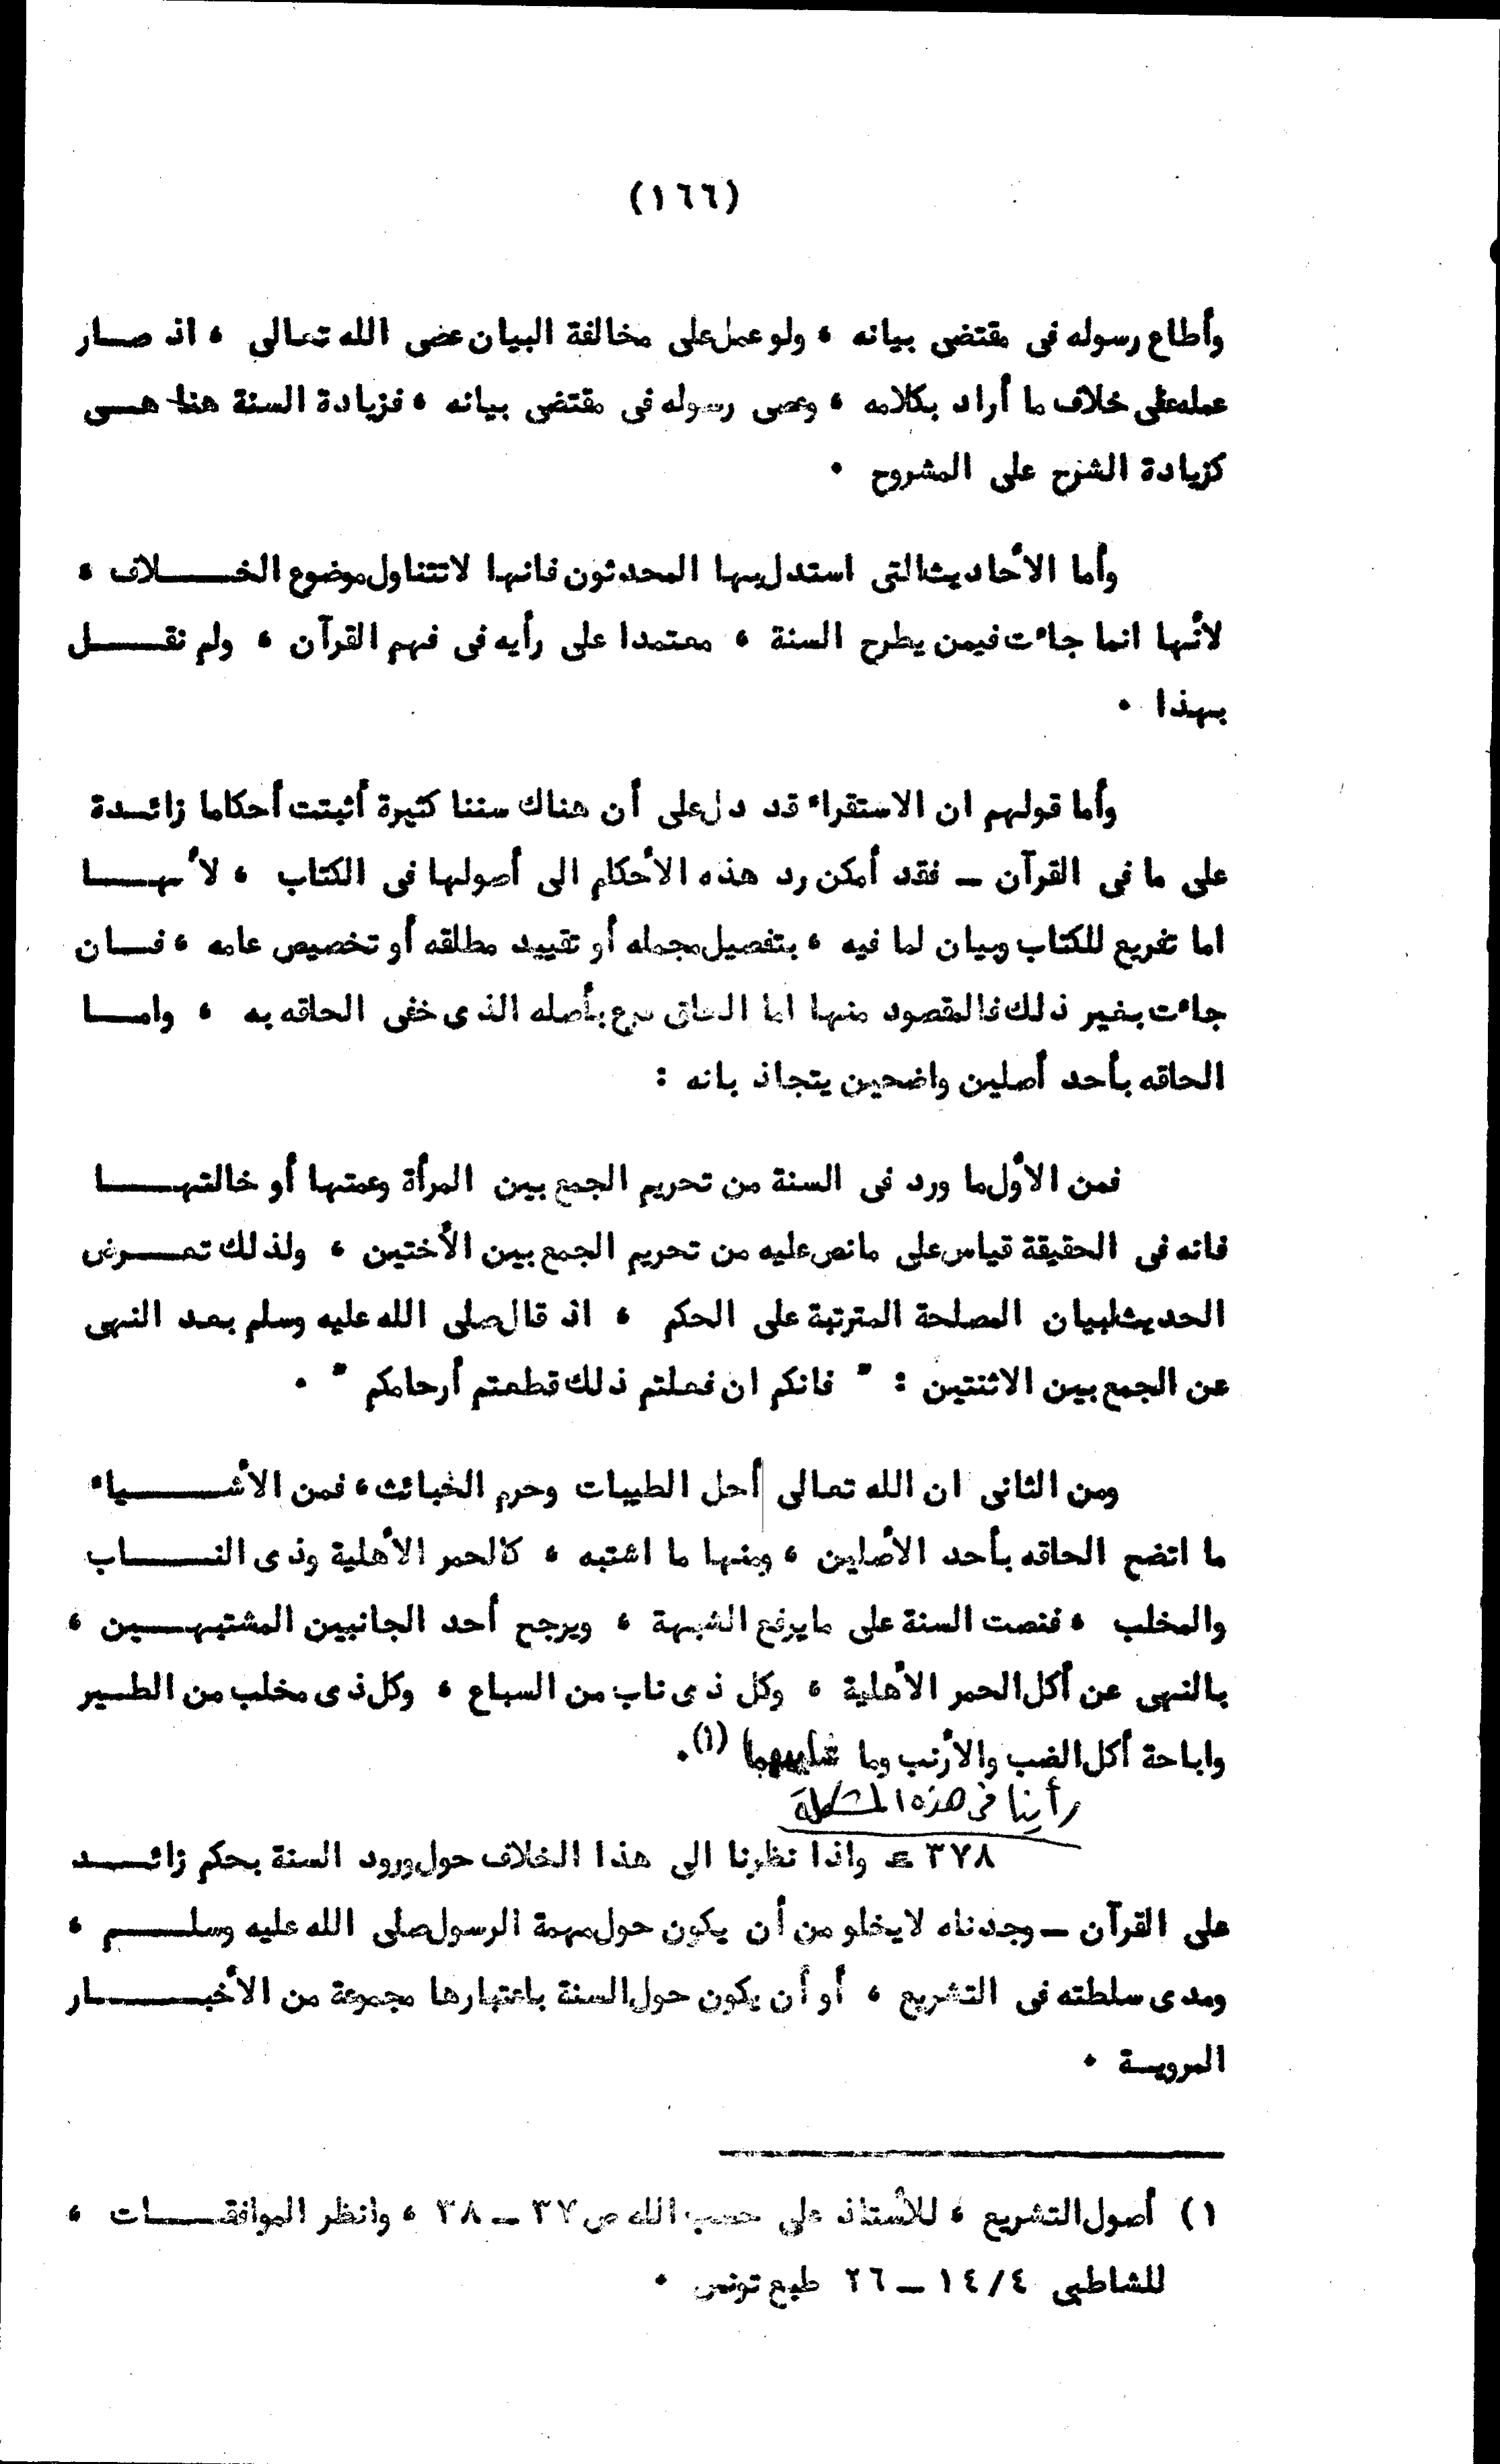 (١٦٦)
وأطاع رسوله فى مقتضى بيانه ، ولو عمل على مخالفة البيان عصى الله تعالى ، اذ صار
عمله على خلاف ما أراد بكلامه ، وعصى رسوله فى مقتضى بيانه ، فزيادة السنة هنا هى
كزيادة الشرح على المشروح .
وأما الأحاديث التى استدل بها المحدثون فانها لا تتناول موضوع الخلاف ،
لأنها انما جاءت فيمن يطرح السنة ، معتمدا على رأيه فى فهم القرآن ، ولم نقل
بهذا .
وأما قولهم ان الاستقراء قد دل على أن هناك سننا كثيرة أثبتت أحكاما زائدة
على ما فى القرآن ــ فقد أمكن رد هذه الأحكام الى أصولها فى الكتاب ، لأنها
اما تفريع للكتاب وبيان لما فيه ، بتفصيل مجمله أو تقييد مطلقه أو تخصيص عامه ، فان
جاءت بغير ذلك فالمقصود منها اما الحاق فرع بأصله الذى خفى الحاقه به ، واما
الحاقه بأحد أصلين واضحين يتجاذبانه :
فمن الأول ما ورد فى السنة من تحريم الجمع بين المرأة وعمتها أو خالتها
فانه فى الحقيقة قياس على ما نص عليه من تحريم الجمع بين الأختين ، ولذلك تعرض
الحديث لبيان المصلحة المترتبة على الحكم ، اذ قال صلى الله عليه وسلم بعد النهى
عن الجمع بين الاثنتين : " فانكم ان فعلتم ذلك قطعتم أرحامكم " .
ومن الثانى ان الله تعالى أحل الطيبات وحرم الخبائث ، فمن الأشياء
ما اتضح الحاقه بأحد الأصلين ، ومنها ما اشتبه ، كالحمر الأهلية وذى الناب
والمخلب ، فنصت السنة على ما يرفع الشبهة ، ويرجح أحد الجانبين المشتبهين ،
بالنهى عن أكل الحمر الأهلية ، وكل ذى ناب من السباع ، وكل ذى مخلب من الطير
واباحة أكل الضب والأرنب وما (١).
رأينا فى هذه المشكلة
٣٧٨ ــ واذا نظرنا الى هذا الخلاف حول ورود السنة بحكم زائد
على القرآن ــ وجدناه لا يخلو من أن يكون حول مهمة الرسول صلى الله عليه وسلم ،
ومدى سلطته فى التشريع ، أو أن يكون حول السنة باعتبارها مجموعة من الأخبار
المروية .
١) أصول التشريع ، للأستاذ على حسب الله ص ٣٧ ــ ٣٨ ، وانظر الموافقات ،
للشاطبى ١٤/٤ ــ ٢٦ طبع تونس .